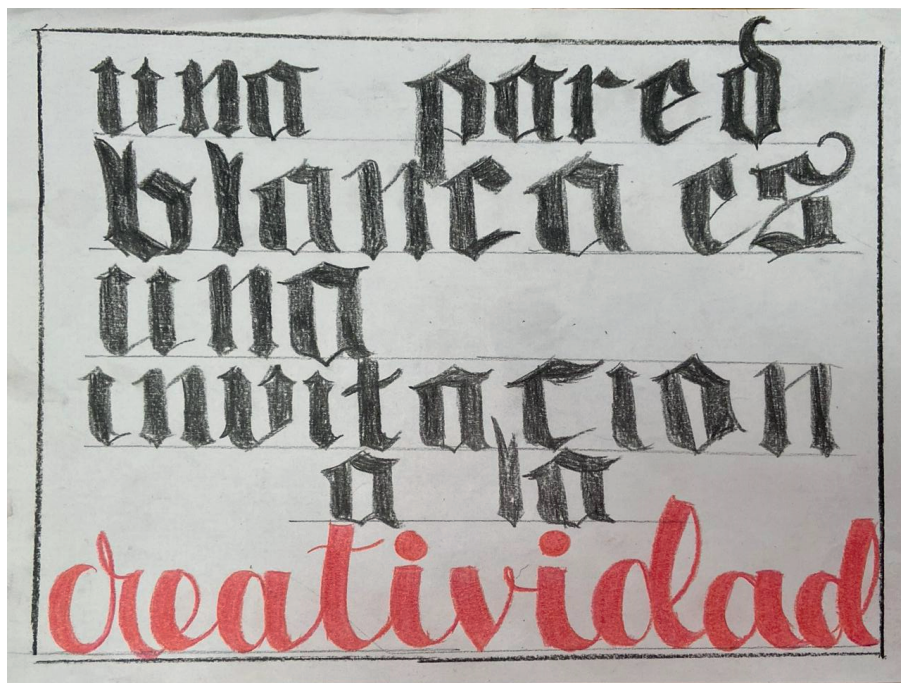 una pared
blanca es
una
invitacion
a la
creatividad